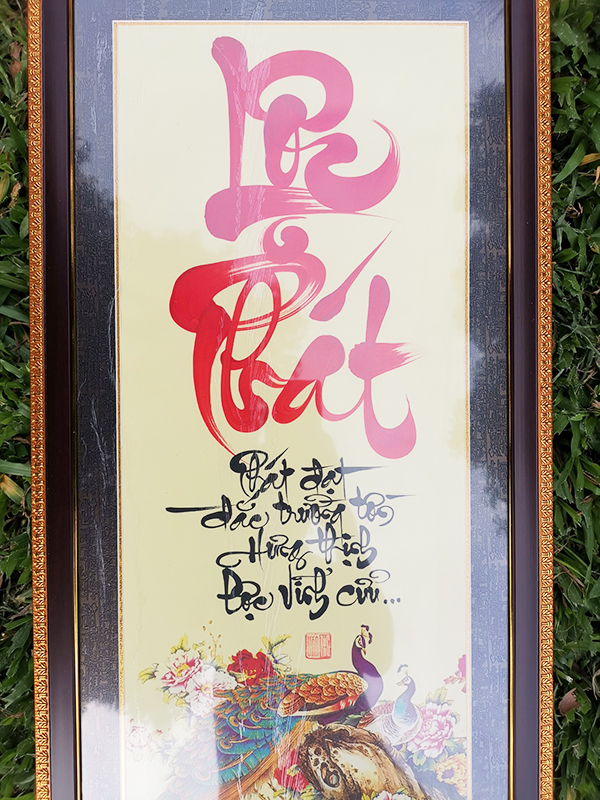 Lộc
Phát
Phát đạt
đắc trường tồn
Hưng thịnh
Lộc vĩnh cửu...